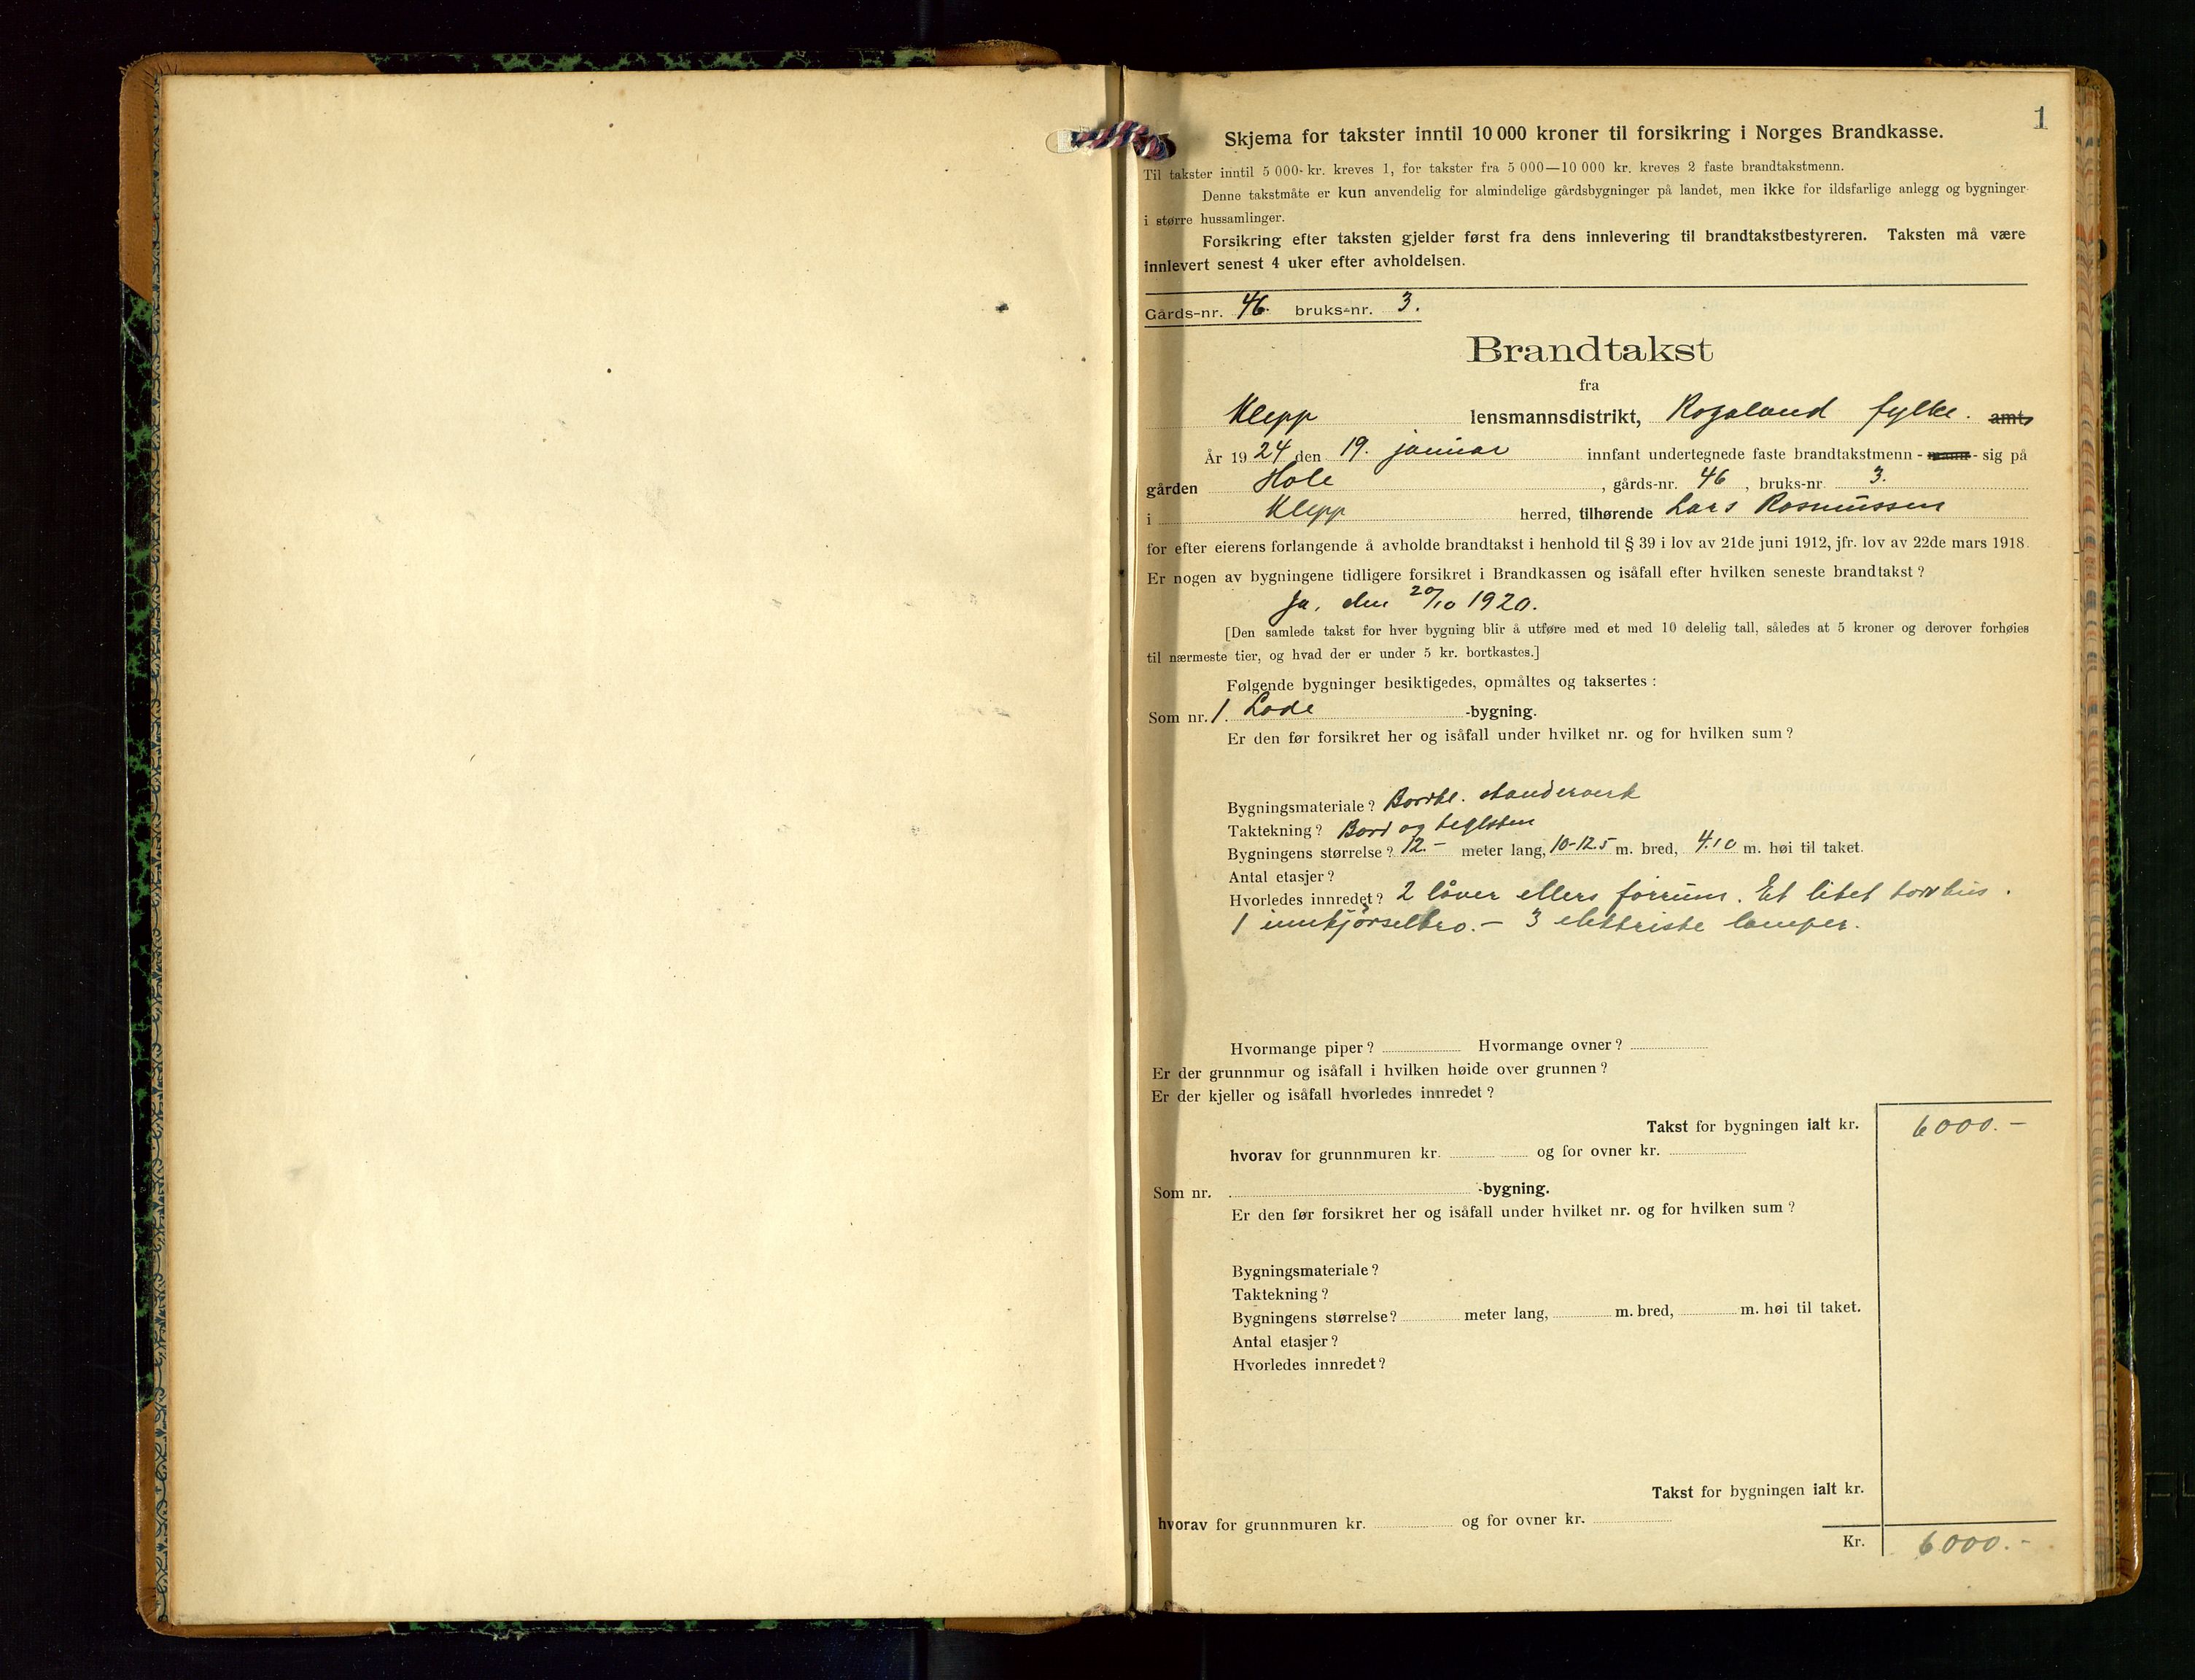 1
Skjema for takster inntil 10 000 kroner til forsikring i Norges Brandkasse.
Til takster inntil 5 000 kr. kreves 1, for takster fra 5 000—10 000 kr. kreves 2 faste brandtakstmenn.
Denne takstmåte er kun anvendelig for almindelige gårdsbygninger på landet, men ikke for ildsfarlige anlegg og bygninger
i større hussamlinger.
Forsikring efter taksten gjelder først fra dens innlevering til brandtakstbestyreren. Taksten må være
innlevert senest 4 uker efter avholdelsen.
Gårds-nr. 46. bruks-nr. 3.
Brandtakst
fra
Klepp lensmannsdistrikt, Rogaland fylke. amt,
År 1924 den 19. januar innfant undertegnede faste brandtakstmenn - mann - sig på
gården Hole, gårds-nr. 46, bruks-nr. 3.
i Klepp herred, tilhørende Lars Rasmussen
for efter eierens forlangende å avholde brandtakst i henhold til § 39 i lov av 21de juni 1912, jfr. lov av 22de mars 1918.
Er nogen av bygningene tidligere forsikret i Brandkassen og isåfall efter hvilken seneste brandtakst?
Ja, den 20/10 1920.
[Den samlede takst for hver bygning blir å utføre med et med 10 delelig tall, således at 5 kroner og derover forhøies
til nærmeste tier, og hvad der er under 5 kr. bortkastes.]
Følgende bygninger besiktigedes, opmåltes og taksertes:
Som nr. 1. Lade -bygning.
Er den før forsikret her og isåfall under hvilket nr. og for hvilken sum?
Bygningsmateriale? Bordkl. standerverk
Taktekning? Bord og teglsten
Bygningens størrelse? 12.- meter lang, 10-12.5 m. bred, 4.10 m. høi til taket.
Antal etasjer?
Hvorledes innredet? 2 låver ellers forrum. Et litet torvhus.
1 innkjørselbro. - 3 elektriske lamper.
Hvormange piper? Hvormange ovner?
Er der grunnmur og isåfall i hvilken høide over grunnen?
Er der kjeller og isåfall hvorledes innredet?
Takst for bygningen ialt kr. 6000.-
hvorav for grunnmuren kr. og for ovner kr.
Som nr. -bygning.
Er den før forsikret her og isåfall under hvilket nr. og for hvilken sum?
Bygningsmateriale?
Taktekning?
Bygningens størrelse? meter lang, m. bred, m. høi til taket.
Antal etasjer?
Hvorledes innredet?
Takst for bygningen ialt kr.
hvorav for grunnmuren kr. og for ovner kr.
Kr. 6000.-